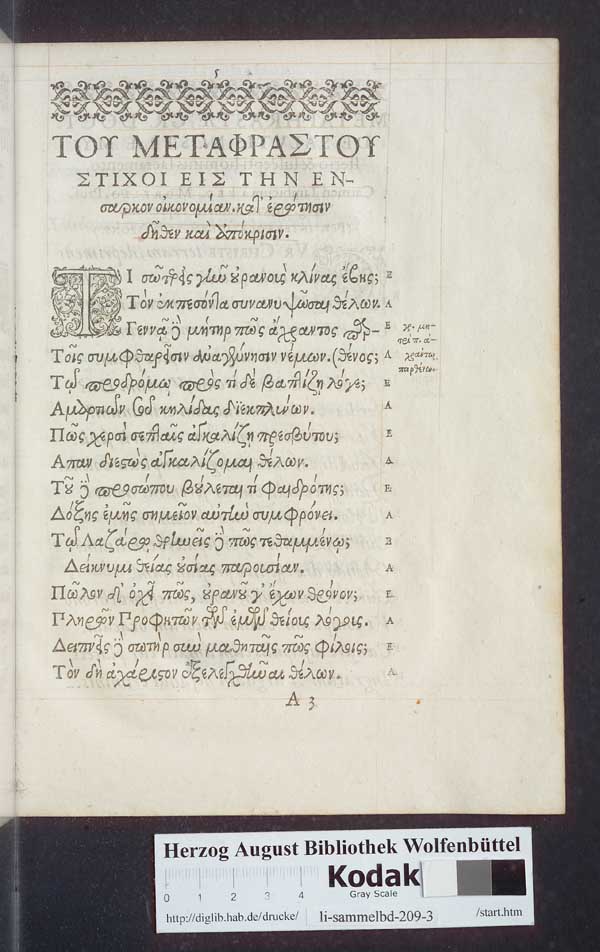 5
ΤΟΥ ΜΕΤΑΦΡΑΣΤΟΥ
ΣΤΙΧΟΙ ΕΙΣ ΤΗΝ ΕΝ-
σαρκον οἰκονομίαν. κατ' ἐρώτησιν
δῆθεν καὶ ὑπόκρισιν.
ΤΙ σῶτερ εἰς γῆν οὐρανοὺς κλίνας ἔβης; Ε
Τὸν ἐκπεσόντα συνανυψῶσαι θέλων. Α
Γεννᾷ δὲ μήτηρ πῶς ἄχραντος παρ- Ε
Τοῖς συμφθαρεῖσιν νέμων. (θένος; Α
χ. μη-
τρὶ π. ἀ-
χράντῳ
παρθένῳ.
Τῷ προδρόμῳ πρὸς τί δὲ βαπτίζῃ λόγε; Ε
Ἁμαρτιῶν σου κηλίδας διεκπλύνων. Α
Πῶς χερσὶ σεπταῖς ἀγκαλίζῃ πρεσβύτου; Ε
Ἅπαν διεστὼς ἀγκαλίζομαι θέλων. Α
Τοῦ δὲ προσώπου βούλεται τί φαιδρότης; Ε
Δόξης ἐμῆς σημεῖον αὐτὴν συμφρόνει. Α
Τῷ Λαζάρῳ θρηνεῖς δὲ πῶς τεθαμμένῳ; Ε
Δείκνυμι θείας οὐσίας παρουσίαν. Α
Πῶλον δ' ὀχῇ πῶς, οὐρανοῦ γ' ἔχων θρόνον; Ε
Πληρῶν Προφητῶν τῶν ἐμῶν θείους λόγους. Α
Δειπνεῖς δὲ σωτὴρ σὺν μαθηταῖς πῶς φίλοις; Ε
Τὸν δὴ ἀχάριστον ἐξελεγχθῆναι θέλων. Α
A 3
Herzog August Bibliothek Wolfenbüttel
Kodak
Gray Scale
0 1 2 3 4
http://diglib.hab.de/drucke/ li-sammelbd-209-3 /start.htm